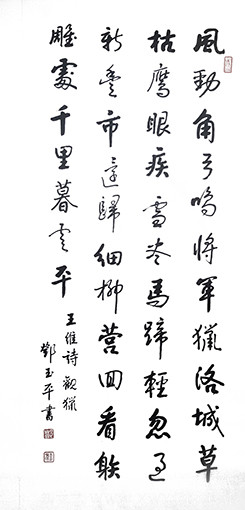 風勁角弓鳴將軍獵洛城草
枯鷹眼疾雪尽馬蹄輕忽過
新豊市還歸細柳營回看射
雕處千里暮雲平
王維詩觀獵
鄧玉平書